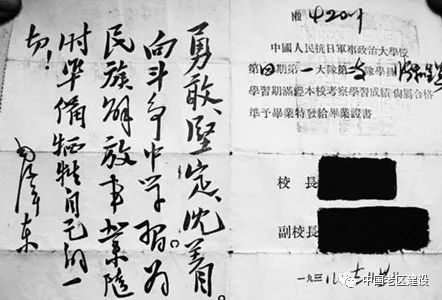 勇敢、堅定、沈着。
向斗争中学習。为
民族解放事業隨
时準備犧牲自己的一
切！
毛澤東
中國人民抗日軍事政治大學校
第四期第一大隊第 隊學員
學習期滿經本校考察學習成績尚屬合格
準予畢業特發給畢業證書
校長
副校長
一九三八
中国老区建设